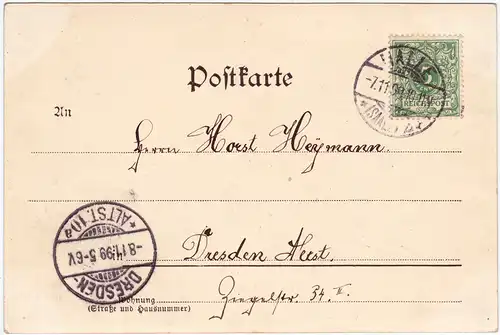 Postkarte
An
Herrn Horst Heymann.
Dresden
Wohnung
(Straße und Hausnummer)
Ziegelstr. 34. II.
HALLE
-7.11.99.
(SAALE)
5
REICHSPOST
DRESDEN
-8.11.99. 5-6V.
*ALTST. 10a